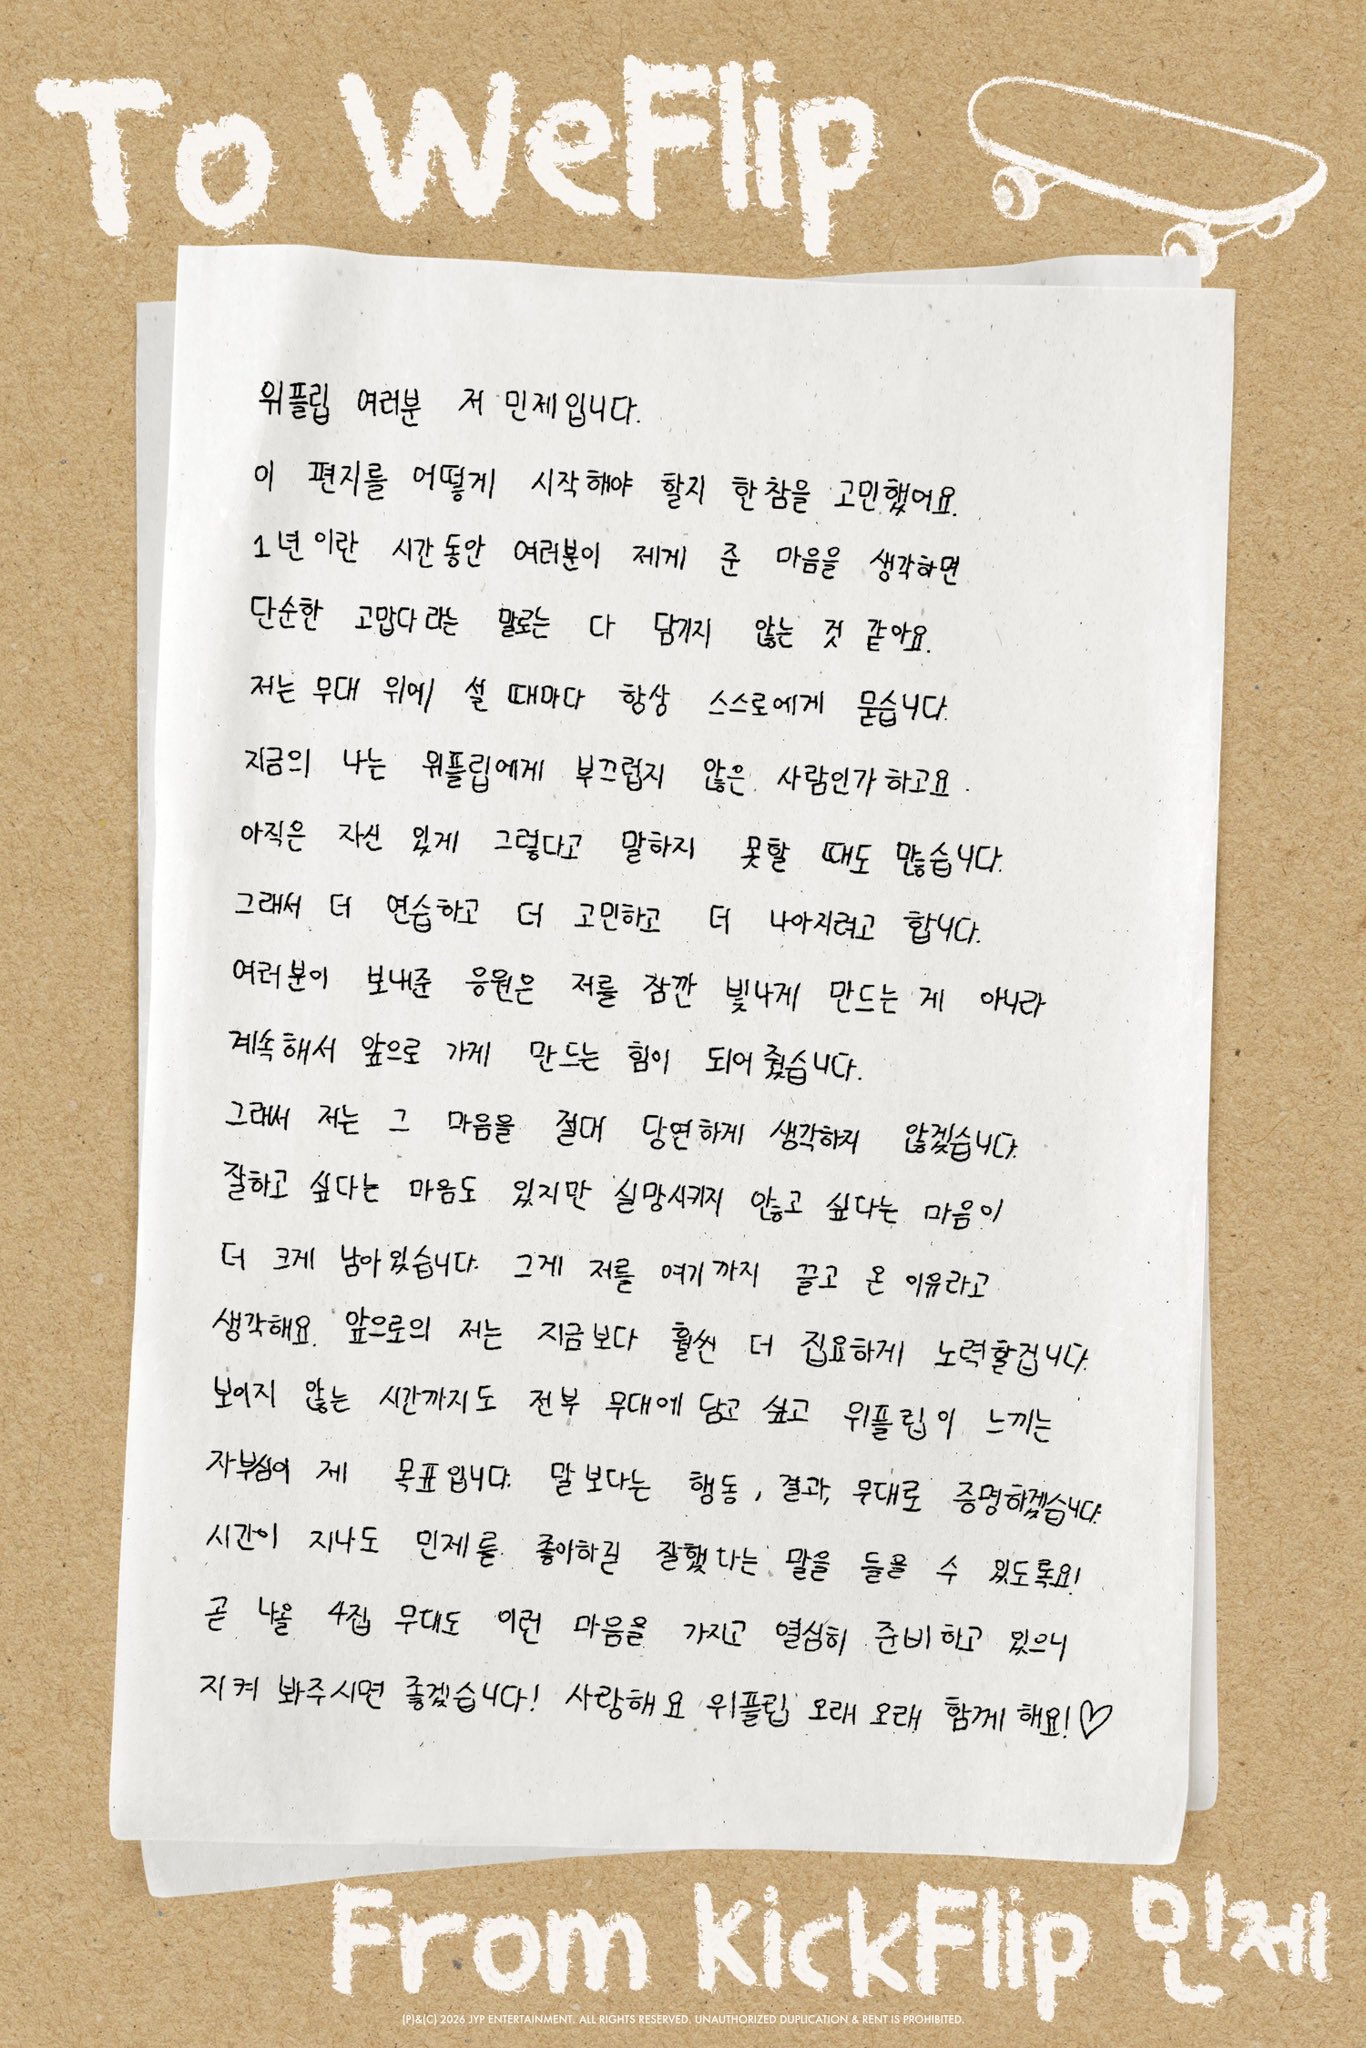 To WeFlip
위플립 여러분 저 민제입니다.
이 편지를 어떻게 시작해야 할지 한참을 고민했어요.
1년이란 시간동안 여러분이 제게 준 마음을 생각하면
단순한 고맙다라는 말로는 다 담기지 않는 것 같아요.
저는 무대 위에 설 때마다 항상 스스로에게 묻습니다.
지금의 나는 위플립에게 부끄럽지 않은 사람인가 하고요.
아직은 자신 있게 그렇다고 말하지 못할 때도 많습니다.
그래서 더 연습하고 더 고민하고 더 나아지려고 합니다.
여러분이 보내준 응원은 저를 잠깐 빛나게 만드는 게 아니라
계속해서 앞으로 가게 만드는 힘이 되어줬습니다.
그래서 저는 그 마음을 절대 당연하게 생각하지 않겠습니다.
잘하고 싶다는 마음도 있지만 실망시키지 않고 싶다는 마음이
더 크게 남아있습니다. 그게 저를 여기까지 끌고 온 이유라고
생각해요. 앞으로의 저는 지금보다 훨씬 더 집요하게 노력할겁니다.
보이지 않는 시간까지도 전부 무대에 담고 싶고 위플립이 느끼는
자부심이 제 목표입니다. 말보다는 행동, 결과, 무대로 증명하겠습니다.
시간이 지나도 민제를 좋아하길 잘했다는 말을 들을 수 있도록요!
곧 나올 4집 무대도 이런 마음을 가지고 열심히 준비하고 있으니
지켜 봐주시면 좋겠습니다! 사랑해요 위플립 오래 오래 함께 해요!♡
From KickFlip 민제
(P)&(C) 2026 JYP ENTERTAINMENT. ALL RIGHTS RESERVED. UNAUTHORIZED DUPLICATION & RENT IS PROHIBITED.